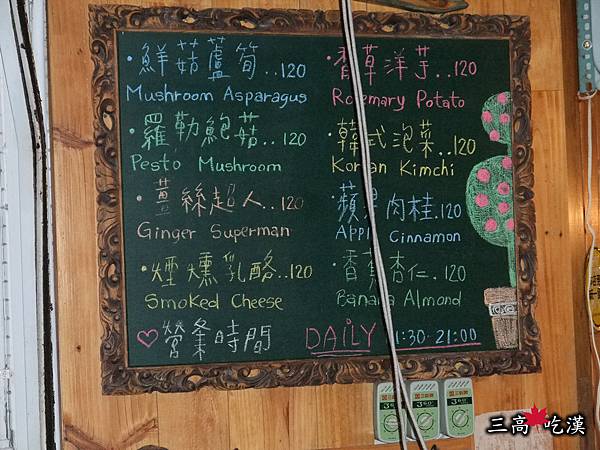 ・鮮菇蘆筍..120
Mushroom Asparagus
・羅勒鮑菇..120
Pesto Mushroom
・薑絲超人..120
Ginger Superman
・煙燻乳酪..120
Smoked Cheese
♡營業時間
・香草洋芋..120
Rosemary Potato
・韓式泡菜..120
Korean Kimchi
・蘋果肉桂.120
Apple Cinnamon
・香蕉杏仁.120
Banana Almond
DAILY 11:30-21:00
三高 吃漢